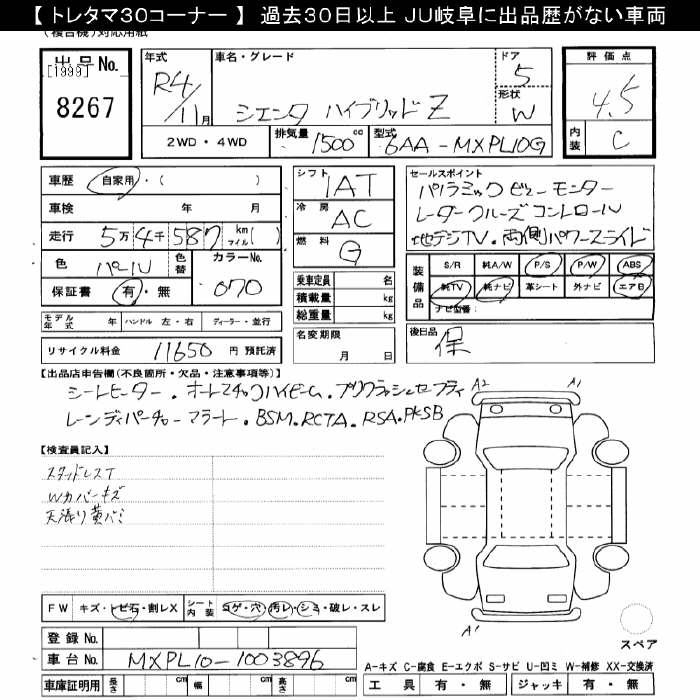 【 トレタマ30コーナー 】 過去30日以上 JU岐阜に出品歴がない車両
(複合機)対応用紙
出品 No.
【1999】
8267
年式
R4/11月
車名・グレード
シエンタ ハイブリッド Z
ドア
5
形状
W
評価点
4.5
内装
C
2WD・4WD
排気量
1500cc
型式
6AA-MXPL10G
車歴 自家用・( )
車検 年 月
走行 5万4千587 km マイル( )
色 パール
色替
カラーNo.
070
保証書 有・無
シフト
IAT
冷房
AC
燃料
G
乗車定員 名
積載量 kg
総重量 kg
名変期限
月 日
セールスポイント
パノラミックビューモニター
レーダークルーズコントロール
地デジTV・両側パワースライド
装備品
S/R 純A/W P/S P/W ABS
純TV 純ナビ 革シート 外ナビ エアB
ナビ型番:
モデル年式 年 ハンドル 左・右 ディーラー・並行
リサイクル料金 11650 円 預託済
後日品
保
【出品店申告欄(不良箇所・欠品・注意事項等)】
シートヒーター・オートマチックハイビーム・プリクラッシュセーフティ
レーンディパーチャーアラート・BSM・RCTA・RSA・PKSB
【検査員記入】
スタッドレスT
Wカバーキズ
天張り黄バミ
A2 A1
A1
スペア
FW キズ・トビ石・割レX
シート内装 コゲ・穴・汚レ・シミ・破レ・スレ
登録 No.
車台 No. MXPL10-1003896
車庫証明用 長さ cm 幅 cm 高さ cm
A-キズ C-腐食 E-エクボ S-サビ U-凹ミ W-補修 XX-交換済
工具 有・無 ジャッキ 有・無